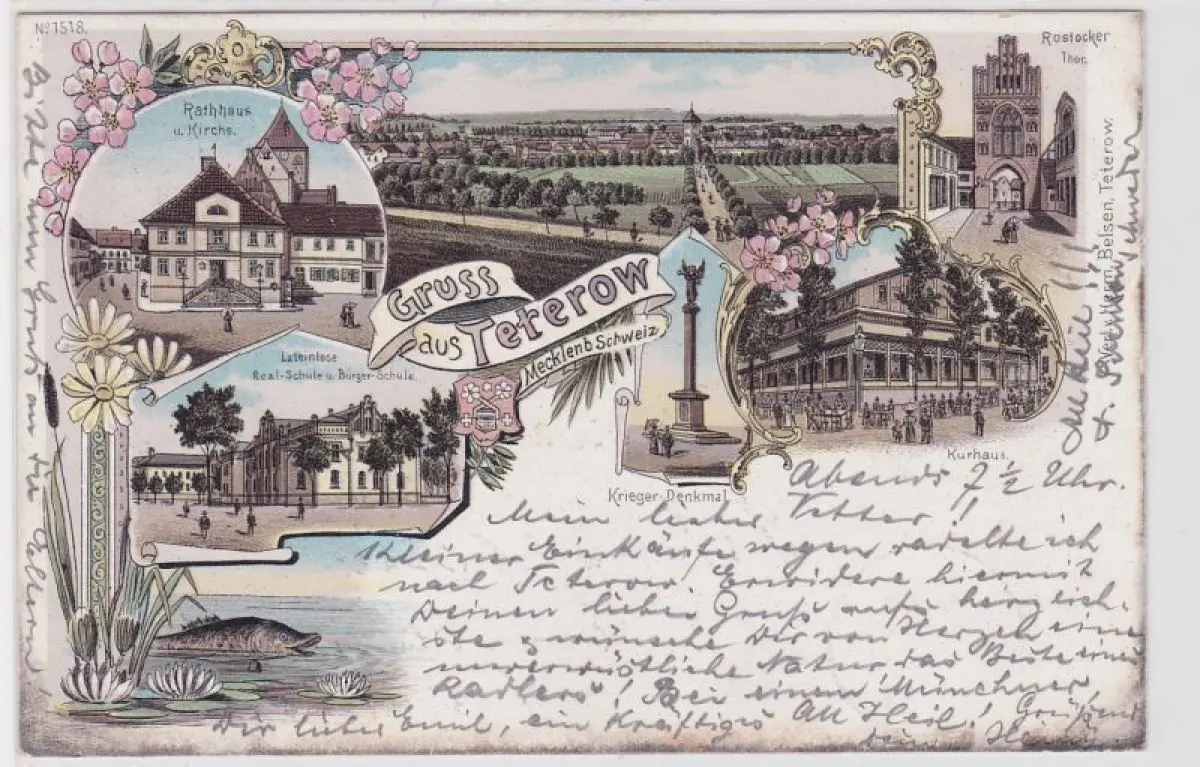 No 1518.
Rathhaus
u. Kirche.
Rostocker
Thor.
Gruss
aus Teterow
Mecklenb Schweiz
Lateinlose
Real-Schule u. Bürger-Schule.
Krieger-Denkmal
Kurhaus.
Verl. v. Kern, Belsen, Teterow.
Abends 7 ½ Uhr.
Mein lieber Vetter!
Kleiner Einkäufe wegen radelte ich
nach Teterow. Erwidere hiermit
Deinen lieben Gruß aufs herzlich-
ste & wünsche Dir von Herzen eine
unverwüstliche Natur das Beste eines
Radlers! Bei einem Münchner,
Dir lieber Emil, ein kräftiges All Heil! Grüßend
Dein
Bitte um Gruß an die Eltern!
All Heil!!
&